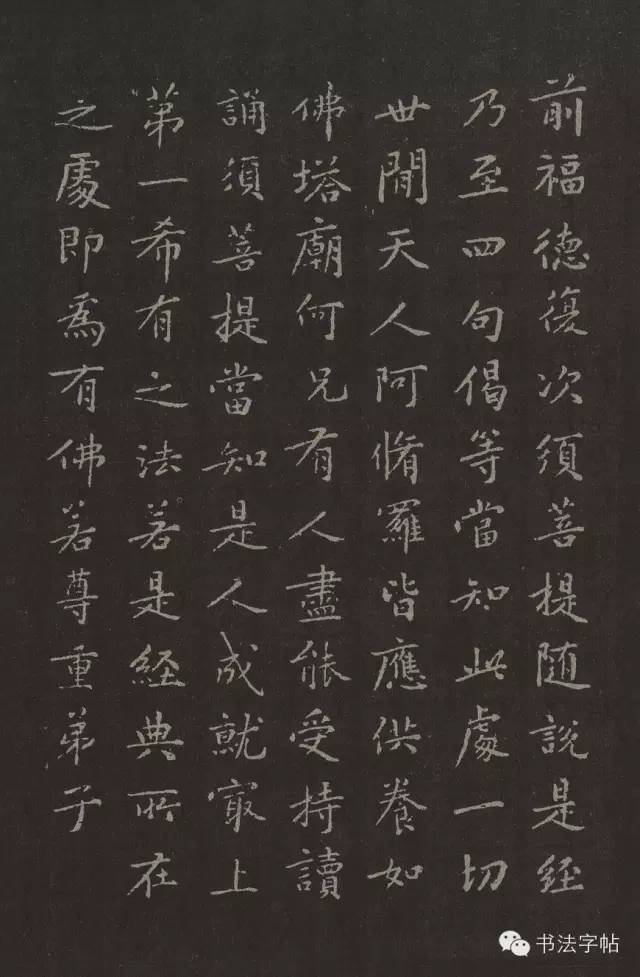 前福德復次須菩提随說是経
乃至四句偈等當知此處一切
世間天人阿脩羅皆應供養如
佛塔廟何况有人盡能受持讀
誦須菩提當知是人成就寂上
第一希有之法若是経典所在
之處即為有佛若尊重弟子
书法字帖